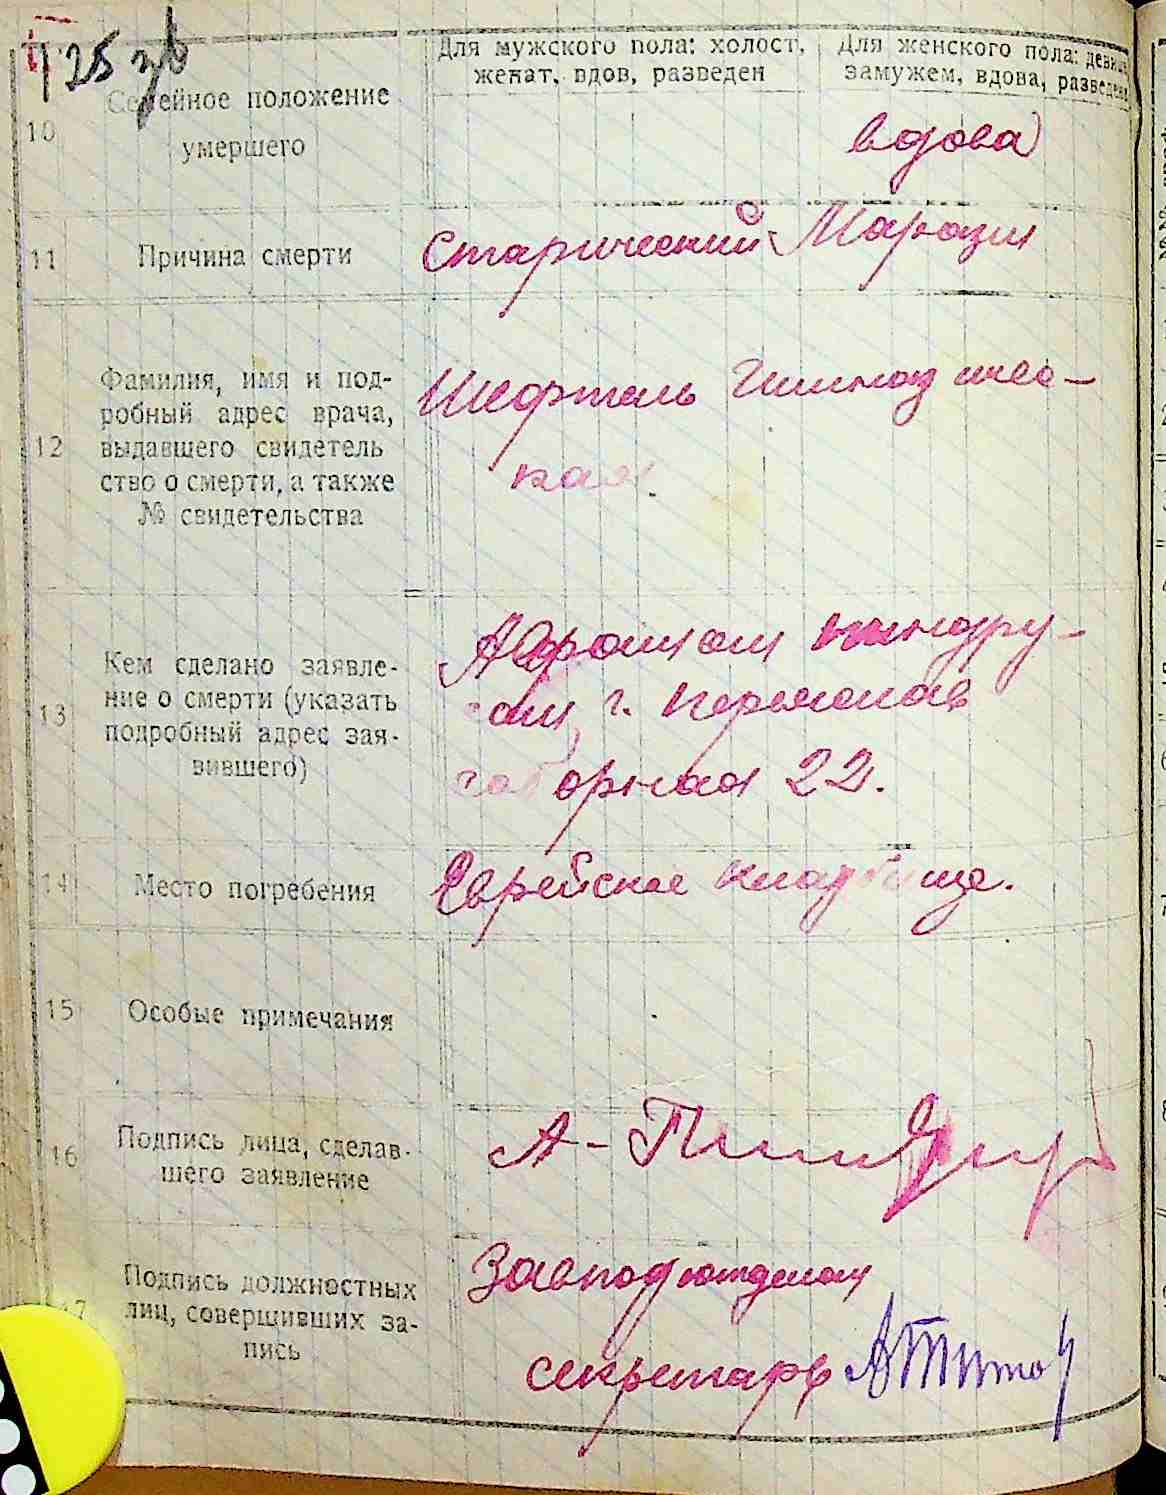 25 зв
Для мужского пола: холост,
женат, вдов, разведен
Для женского пола: девица,
замужем, вдова, разведена
10
Семейное положение
умершего
вдова
11
Причина смерти
Старический Маразм
12
Фамилия, имя и под-
робный адрес врача,
выдавшего свидетель
ство о смерти, а также
№ свидетельства
Шефтель Гимназичес-
кая.
13
Кем сделано заявле-
ние о смерти (указать
подробный адрес зая-
вившего)
г. Переяслав
соборная 22.
14
Место погребения
Еврейское кладбище.
15
Особые примечания
16
Подпись лица, сделав-
шего заявление
А-
17
Подпись должностных
лиц, совершивших за-
пись
Завподотделом
секретарь